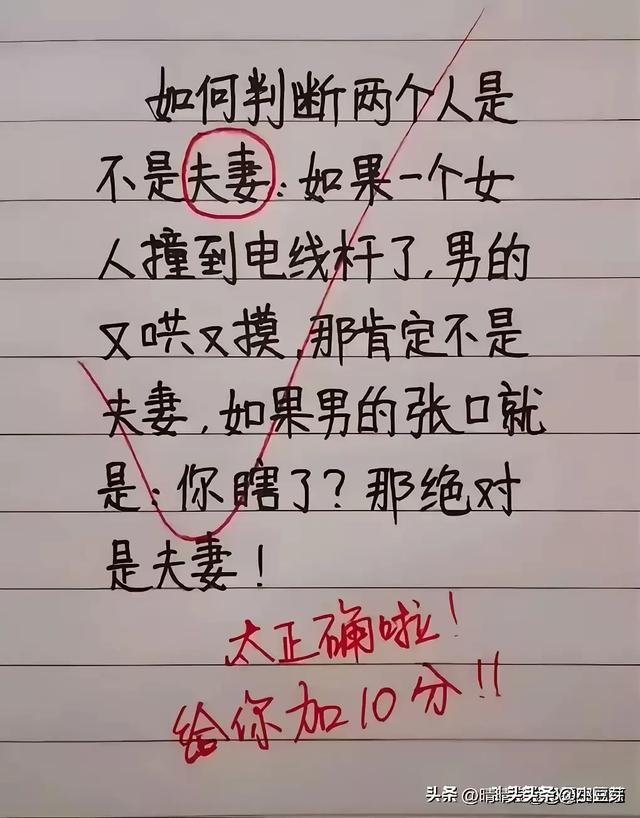 如何判断两个人是
不是夫妻:如果一个女
人撞到电线杆了,男的
又哄又摸,那肯定不是
夫妻,如果男的张口就
是:你瞎了?那绝对
是夫妻!
太正确啦!
给你加10分!!
头条 @